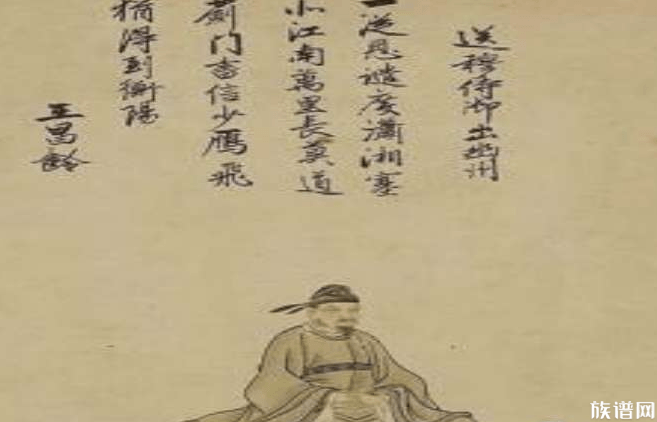 送穆侍御出幽州
一從恩譴度瀟湘塞
北江南萬里長莫道
薊门書信少鴈飛
猶得到衡陽
王昌齡
族谱网